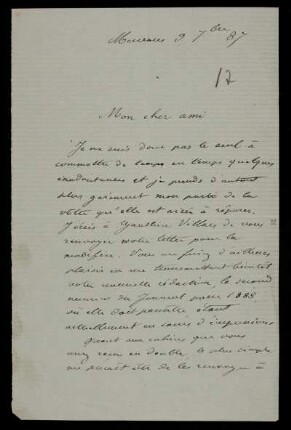 9 7bre 87
17
Mon cher ami
Je ne suis donc pas le seul à
commettre de temps en temps quelques
inadvertances et je prends d'autant
plus gaiement mon parti de la
vôtre qu'elle est aisée à réparer.
J'écris à Gauthier Villars de vous
renvoyer votre lettre pour la
modifier. Vous me ferez d'ailleurs
plaisir en me transmettant bientôt
votre nouvelle rédaction, le second
numéro du Journal pour 1888
où elle doit paraître étant
actuellement en cours d'impression
Quant aux cahiers que vous
avez reçus en double, le plus simple
me paraît être de les renvoyer à